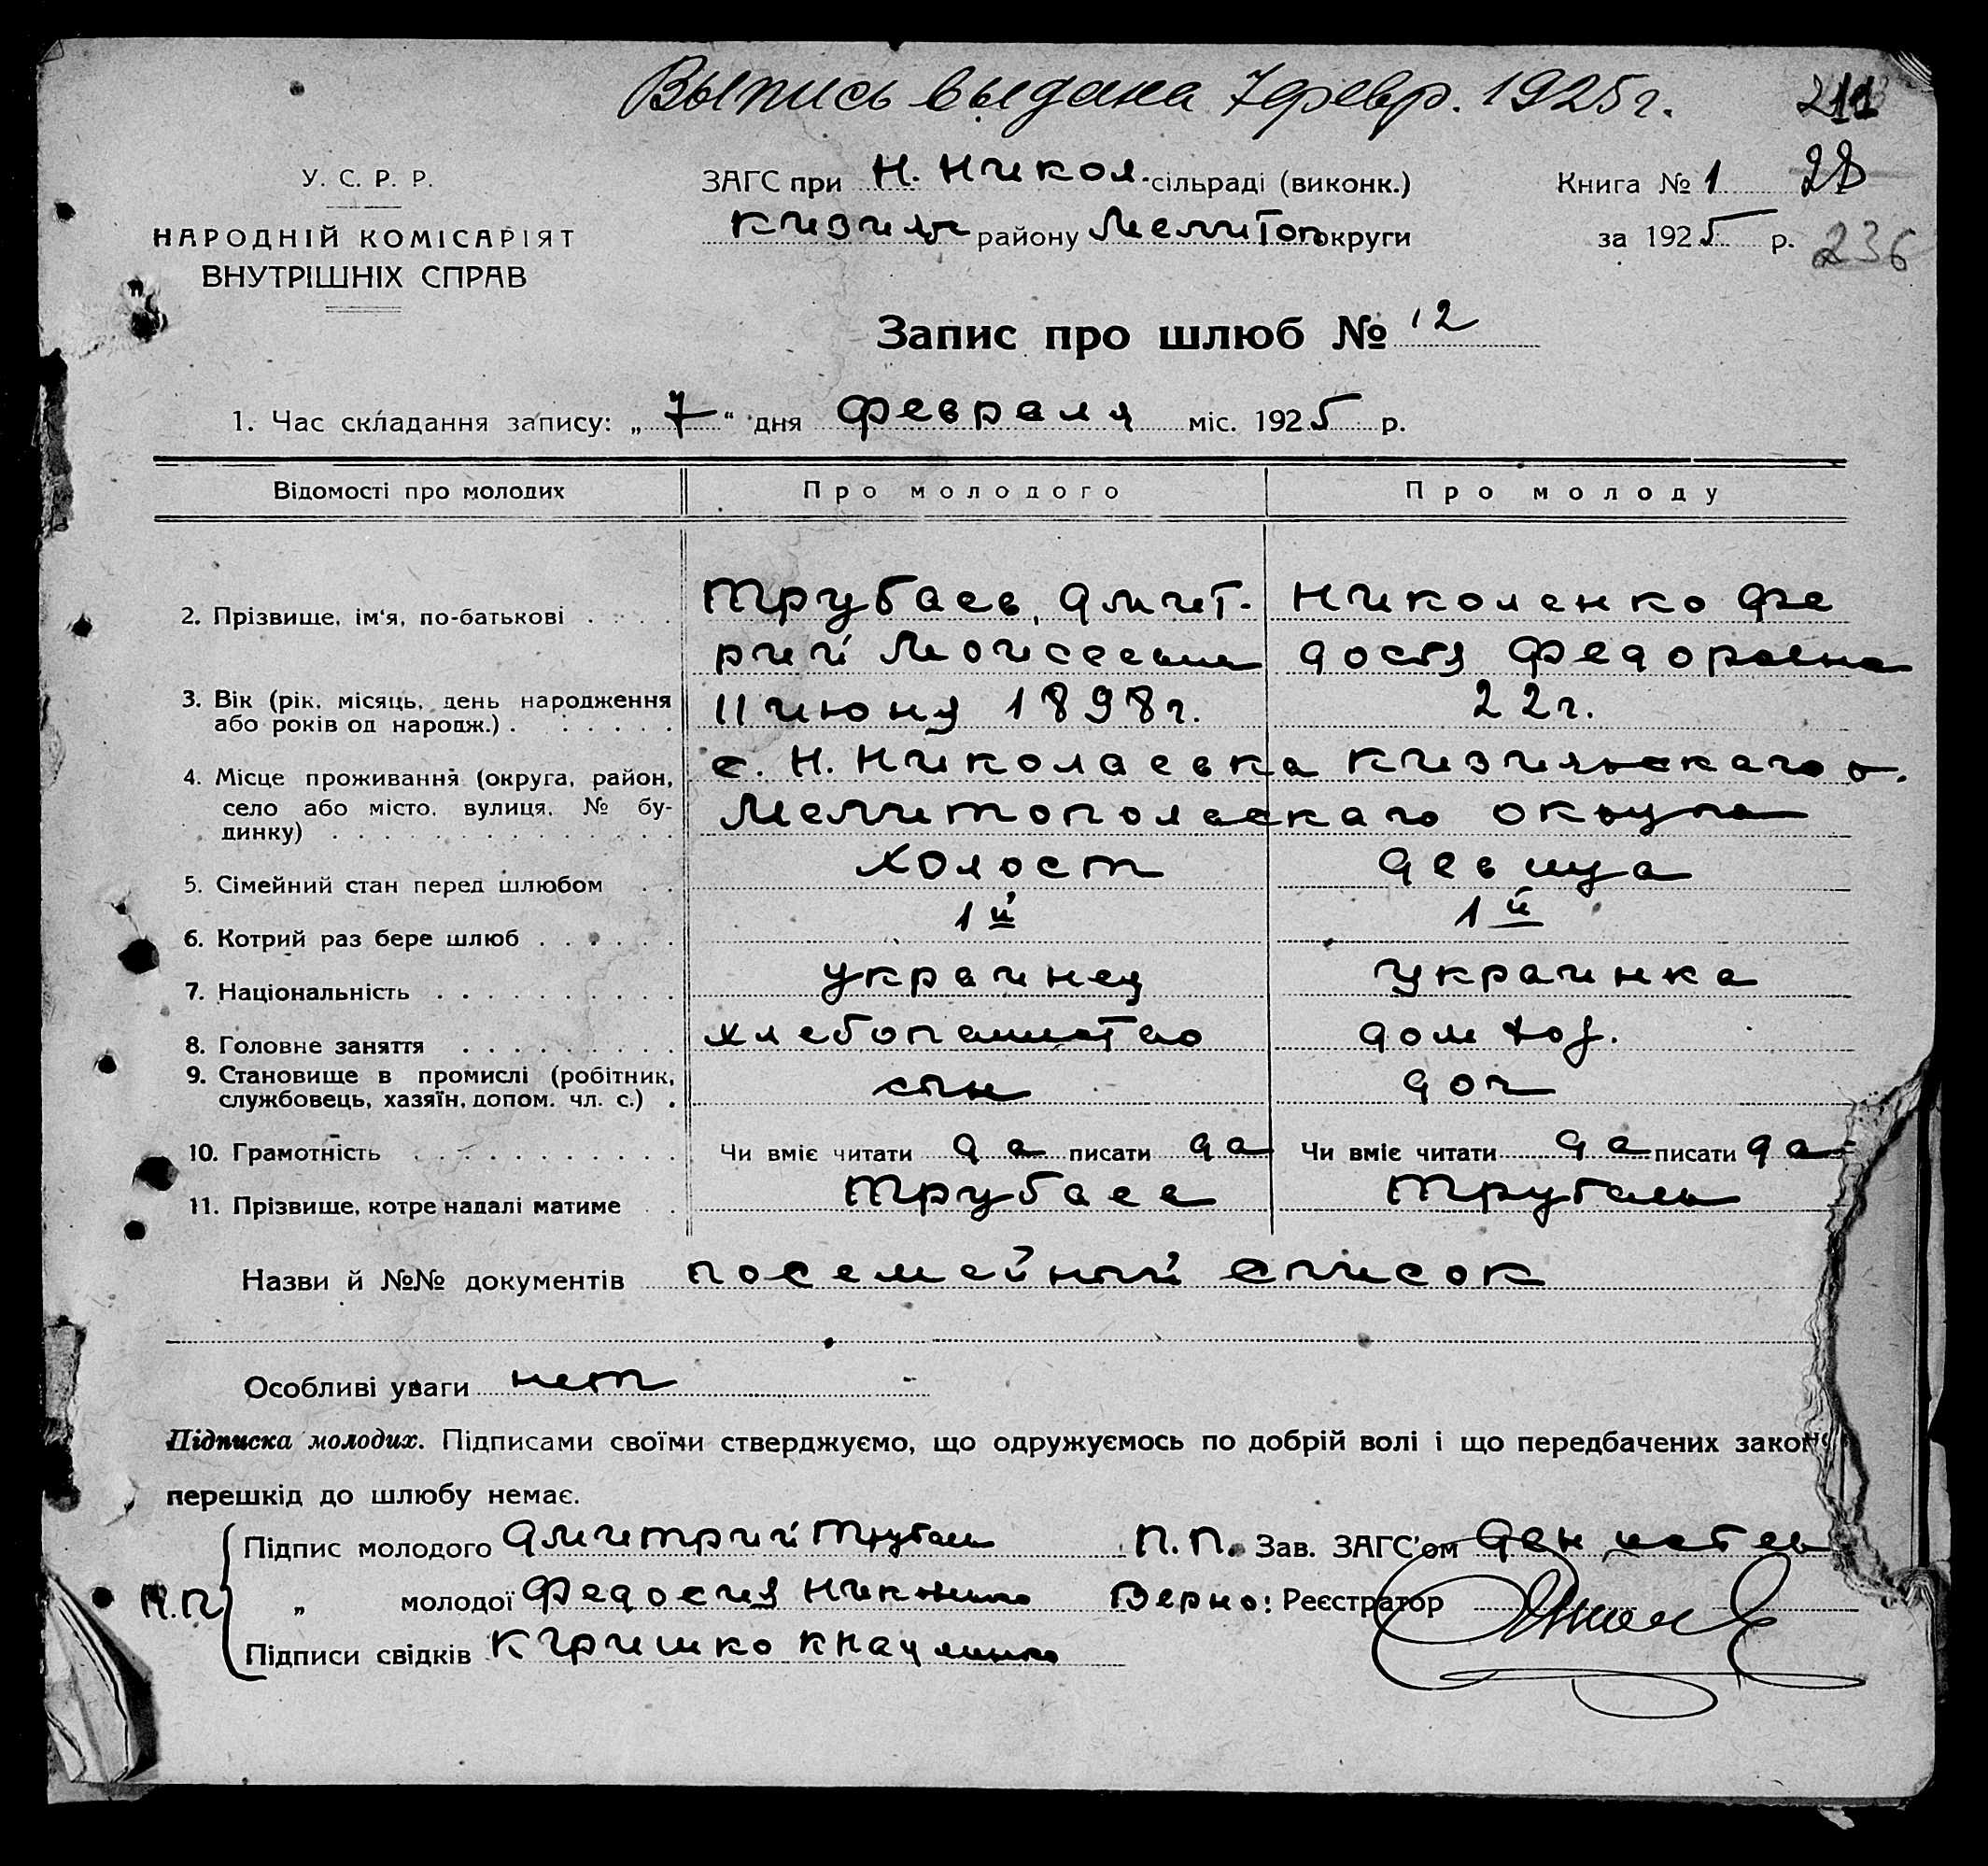 Выпись выдана 7 февр. 1925 г. 211
У. С. Р. Р.
НАРОДНІЙ КОМІСАРІЯТ
ВНУТРІШНІХ СПРАВ
ЗАГС при Н. Никол. сільраді (виконк.)
Кизиля района Мелитоп округи
Книга № 1 28
за 1925 р. 236
Запис про шлюб № 12
1. Час складання запису: „ 7 “ дня февраля міс. 1925 р.
Відомості про молодих Про молодого Про молоду
2. Прізвище, ім'я, по-батькові Трубаев, Дмит- Николенко Фе
рий Моисеевич досия Федоровна
3. Вік (рік, місяць, день народження
або років од народж.) 11 июня 1898 г. 22 г.
4. Місце проживання (округа, район,
село або місто, вулиця, № бу-
динку)
с. Н. Николаевка Кизильскаго
Мелитопольскаго округа
5. Сімейний стан перед шлюбом холост девица
6. Котрий раз бере шлюб 1й 1й
7. Національність украинец украинка
8. Головне заняття хлебопашество дом хоз.
9. Становище в промислі (робітник,
службовець, хазяїн, допом. чл. с.) сын доч
10. Грамотність Чи вміє читати да писати да Чи вміє читати да писати да
11. Прізвище, котре надалі матиме Трубаев Трубаев
Назви й №№ документів посемейный список
Особливі уваги нет
Підписка молодих. Підписами своїми стверджуємо, що одружуємось по добрій волі і що передбачених закон
перешкід до шлюбу немає.
Підпис молодого Дмитрий Трубаев П.П. Зав. ЗАГС'ом
М.П. „ молодої Федосия Николенко Верно: Реєстратор
Підписи свідків К Гришко К